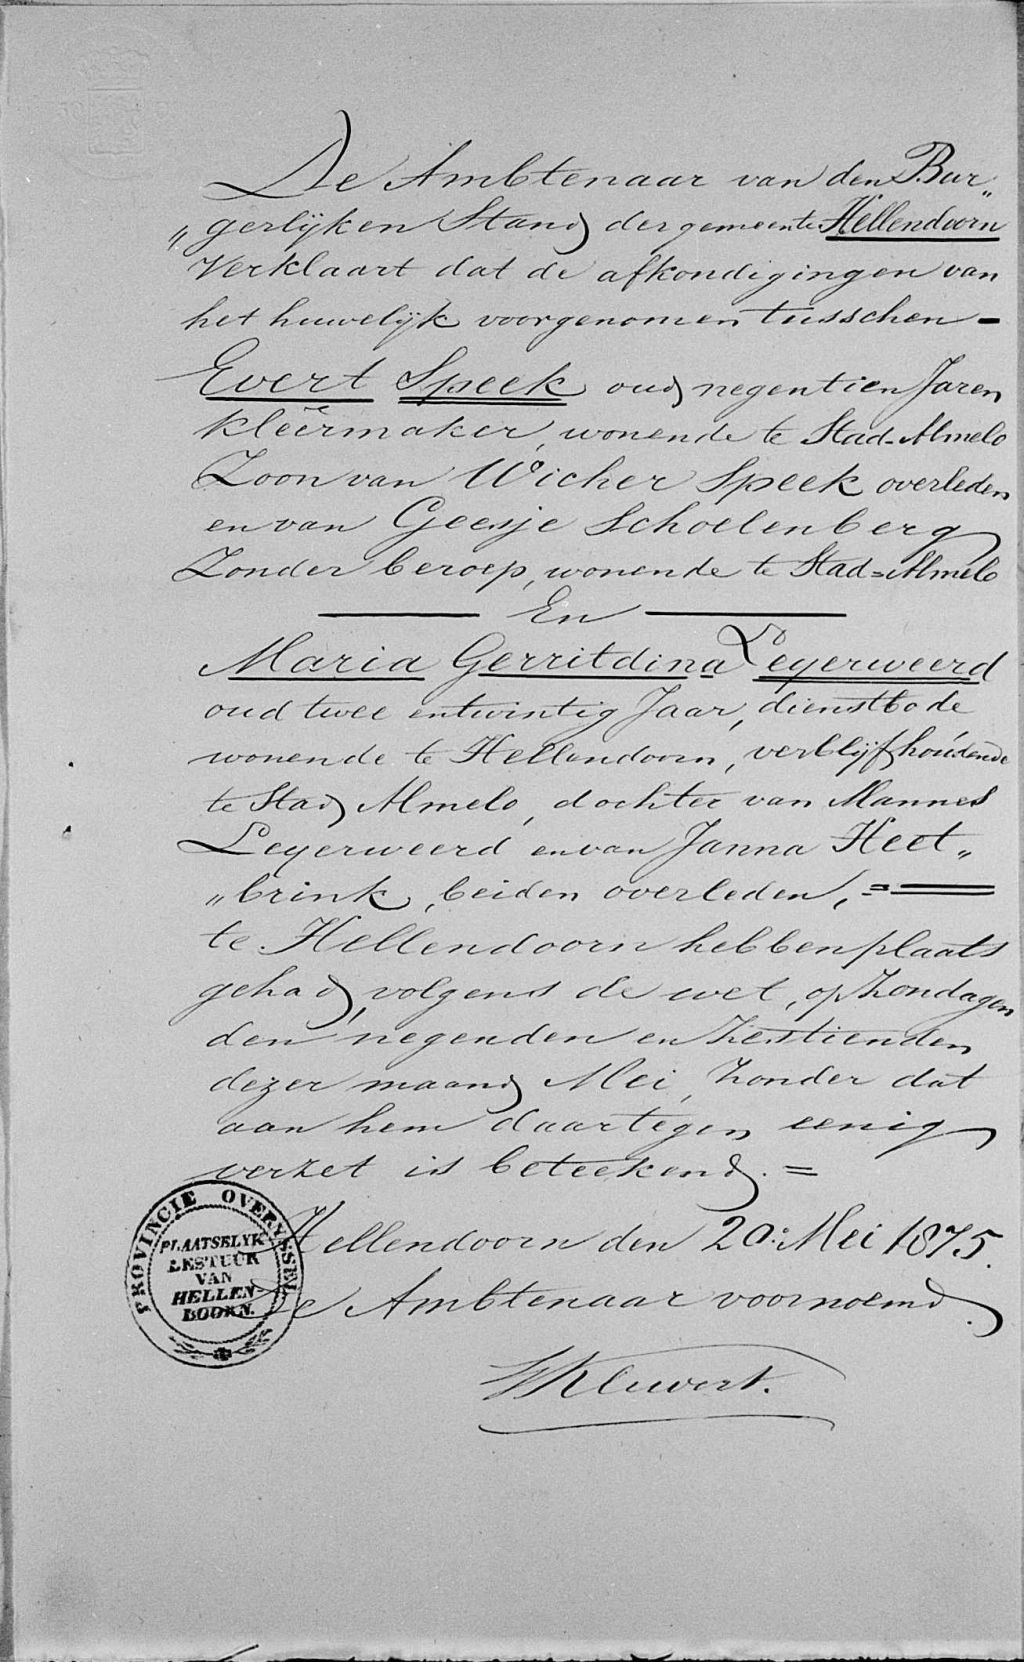 De Ambtenaar van den Bur„
„gerlijken Stand der gemeente Hellendoorn
Verklaart dat de afkondigingen van
het huwelijk voorgenomen tusschen -
Evert Speek oud negentien Jaren
kleêrmaker, wonende te Stad-Almelo
Zoon van Wicher Speek overleden
en van Geesje Schoelenberg
Zonder beroep, wonende te Stad=Almelo
En
Maria Gerritdina Leyerweerd
oud twee entwintig Jaar, dienstbode
wonende te Hellendoorn, verblijf houdende
te Stad Almelo, dochter van Mannes
Leyerweerd en van Janna Heet„
„brink, beiden overleden, =
te Hellendoorn hebben plaats
gehad, volgens de wet, op Zondagen
den negenden en Zestienden
dezer maand Mei, Zonder dat
aan hem daartegen eenig
verzet is beteekend. =
Hellendoorn den 20: Mei 1875.
De Ambtenaar voornoemd.
PROVINCIE OVERYSSEL
PLAATSELYK
BESTUUR
VAN
HELLEN-
DOORN.